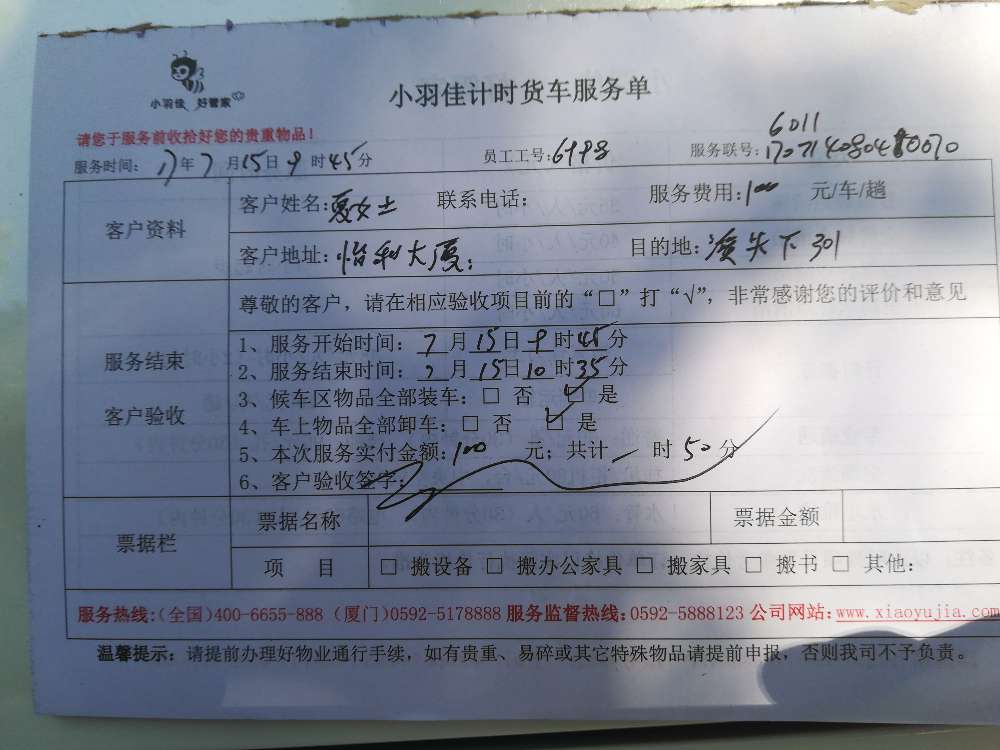 小羽佳 好管家
小羽佳计时货车服务单
请您于服务前收拾好您的贵重物品！
6011
服务时间：17年7月15日9时45分 员工工号：6198 服务联号：
客户资料
客户姓名：夏女士 联系电话： 服务费用：100 元/车/趟
客户地址：怡利大厦； 目的地：下301
尊敬的客户，请在相应验收项目前的“□”打“√”，非常感谢您的评价和意见
服务结束
客户验收
1、服务开始时间：7月15日9时45分
2、服务结束时间：7月15日10时35分
3、候车区物品全部装车：□ 否 ☑ 是
4、车上物品全部卸车：□ 否 ☑ 是
5、本次服务实付金额：100 元；共计一时50分
6、客户验收签字：
票据栏
票据名称 票据金额
项 目 □ 搬设备 □ 搬办公家具 □ 搬家具 □ 搬书 □ 其他：
服务热线：(全国)400-6655-888 (厦门)0592-5178888 服务监督热线：0592-5888123 公司网站：www.xiaoyujia.com
温馨提示：请提前办理好物业通行手续，如有贵重、易碎或其它特殊物品请提前申报，否则我司不予负责。